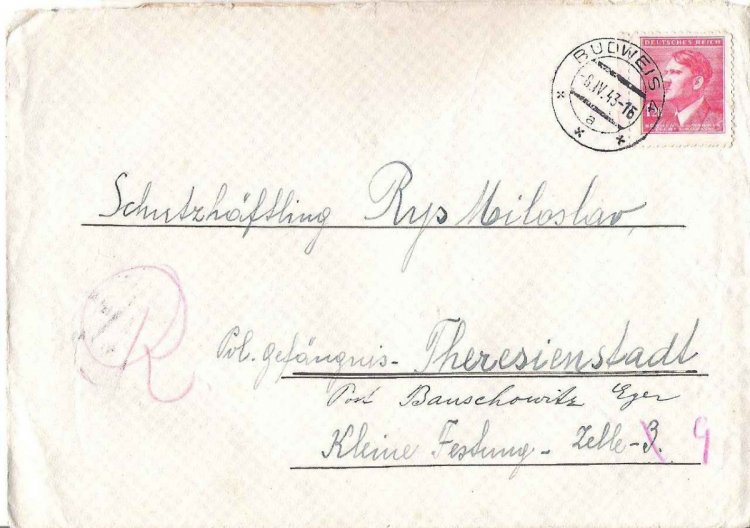 DEUTSCHES REICH
BUDWEIS 4
-6.IV.43-16
a
120
Schutzhäftling Ryp Miloslav,
R
Pol. gefängnis- Theresienstadt
Post Bauschowitz Eger
Kleine Festung - Zelle - 3. 9